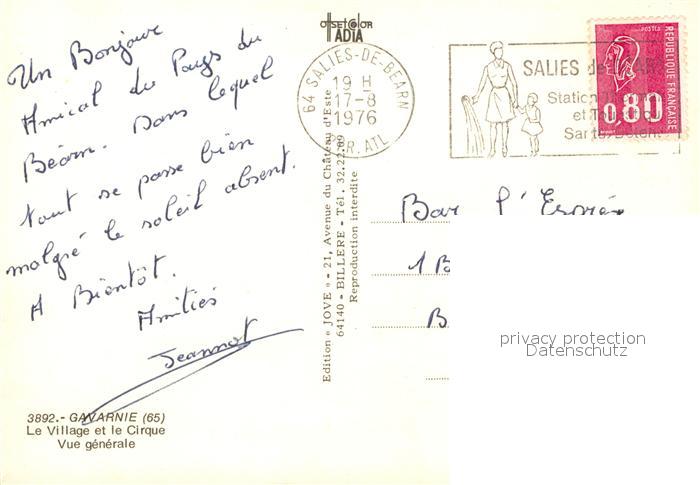 Un Bonjour
Amical du Pays du
Béarn. Dans lequel
tout se passe bien
malgré le soleil absent.
A Bientôt.
Amitiés
Jeannot
3892.- GAVARNIE (65)
Le Village et le Cirque
Vue générale
offset color
ADIA
Edition « JOVE » - 21, Avenue du Château d'Este
64140 - BILLERE - Tél. 32.22.09
Reproduction interdite
64 SALIES-DE-BEARN
19 H
17-8
1976
R. ATL
SALIES de
Station
et
Santé
POSTES
REPUBLIQUE FRANÇAISE
0,80
Bar l'
1 B
B
privacy protection
Datenschutz